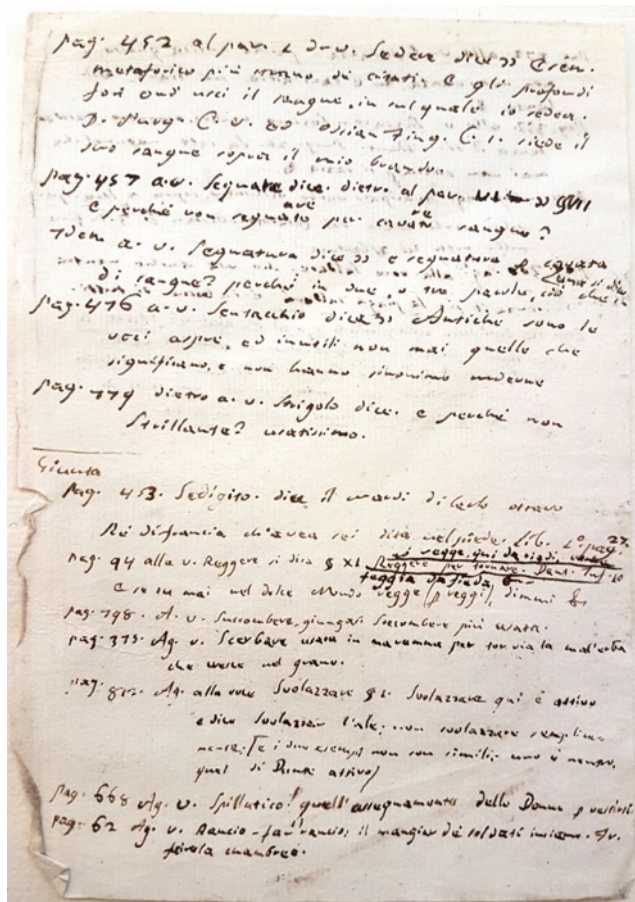 pag. 452 al par. 2 d. v. Sedere dice
metaforico più strano de citati. E gli profondi
fori ond' uscì il sangue, in sul quale io sedea.
D. Purg. C. v. ed Ossian Fing. C. 1. siede il
suo sangue sopra il mio brando.
pag. 457 a. v. Segnare dice. dietro al par. XVII
e perchè non segnare per cavare sangue?
Idem a. v. Segnatura dice e segnatura cavata
di sangue? perchè in due, o tre parole, ciò che in una si dice
pag. 476 a. v. Sentacchio dice Antiche sono le
voci aspre, ed inutili non mai quelle che
significano, e non hanno sinonimo moderne
pag. 779 dietro a. v. Strigolo dice. e perchè non
Strillante? usatissimo.
Giunta
pag. 453. Sedigito. dice il
Re di francia ch'avea sei dita nel piede. Lib. 2º pag. 27.
pag. 94 alla v. Reggere si dica § XI Reggere per tornare. Dant. Inf. 10
E se tu mai nel dolce Mondo regge (p reggi), dimmi &
pag. 798. A. v. Succombere, giungasi Soccombere più usata.
pag. 373. Ag. v. Scerbare usata in maremma per tor via la mal'erba
che cresce nel grano.
pag. 812. Ag. alla voce Svolazzare § 2. Svolazzare qui è attivo
e dice svolazzar l'ale; non svolazzare semplice-
mente; [e i due esempj non son simili; uno è neutro,
quel di Dante attivo]
pag. 668 Ag. v. Spillatico! quell'assegnamento delle Donne p vestirsi.
pag. 62 Ag. v. Rancio - far rancio; il mangiar de soldati insieme. Fr.
chambrée.